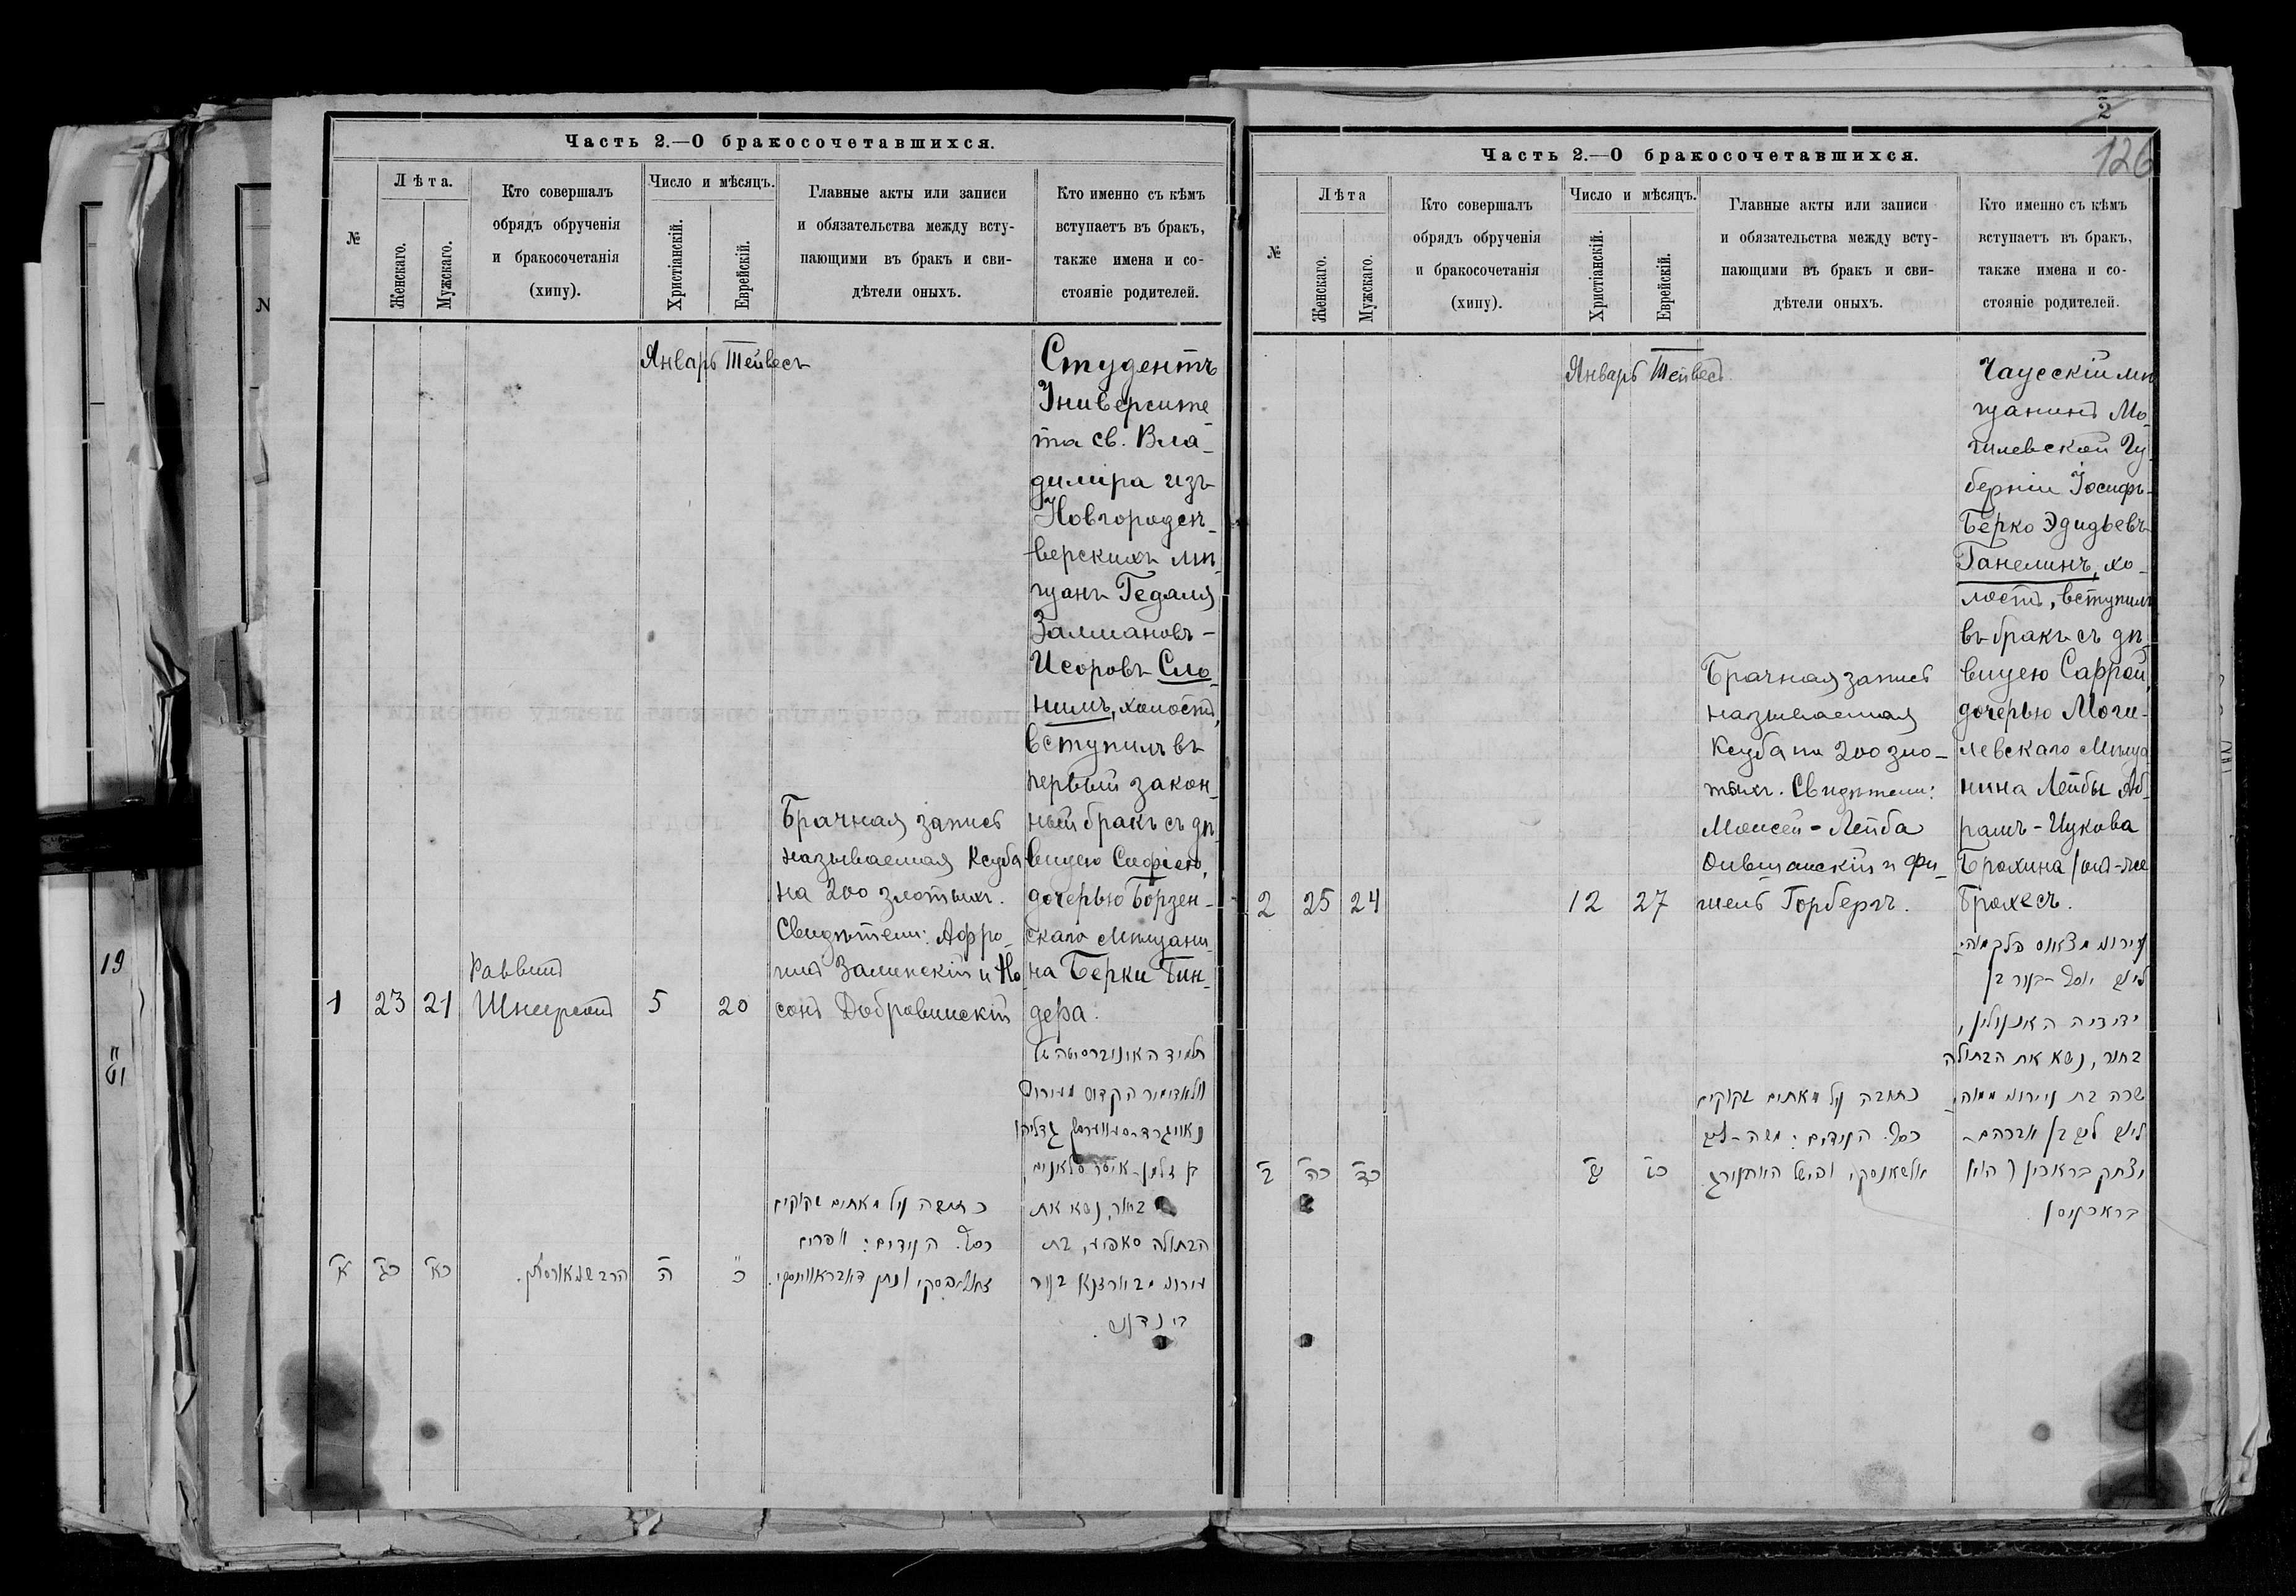 Часть 2.—О бракосочетавшихся.
№
Лѣта.
Женскаго.
Мужскаго.
Кто совершалъ
обрядъ обрученія
и бракосочетанія
(хипу).
Число и мѣсяцъ.
Христіанскій.
Еврейскій.
Главные акты или записи
и обязательства между всту-
пающими въ бракъ и сви-
дѣтели оныхъ.
Кто именно съ кѣмъ
вступаетъ въ бракъ,
также имена и со-
стояніе родителей.
Январь Тейвесъ
1
23
21
Раввинъ
Шнеерсонъ
5
20
Брачная запись
называемая Ксуба
на 200 злотыхъ.
Свидѣтели: Афро-
имъ Залинскій и Но-
сонъ Добровинскій
Студентъ
Университе-
та св. Вла-
диміра изъ
Новгородсѣ-
верскихъ мѣ-
щанъ Гедалія
Залмановъ-
Исоровъ Сло-
нимъ, холостъ,
вступилъ въ
первый закон-
ный бракъ съ дѣ-
вицею Софіею,
дочерью Борзен-
скаго мѣщани-
на Берки Бин-
дера.
א
כג
כא
ה
כ
כתובה על מאתים זקוקים
כסף. העדים: אפרים
ונתן דאבראווינסקי.
תלמיד האוניברסיטה של
וולאדימיר הקדוש מעירוני
גדליהו
בן זלמן-איסר סלאנים
בחור, נשא את
הבתולה סאפיע, בת
עירוני
בינדער.
2
126
Часть 2.—О бракосочетавшихся.
№
Лѣта
Женскаго.
Мужскаго.
Кто совершалъ
обрядъ обрученія
и бракосочетанія
(хипу).
Число и мѣсяцъ.
Христіанскій.
Еврейскій.
Главные акты или записи
и обязательства между всту-
пающими въ бракъ и сви-
дѣтели оныхъ.
Кто именно съ кѣмъ
вступаетъ въ бракъ,
также имена и со-
стояніе родителей.
Январь Тейвесъ
2
25
24
12
27
Брачная запись
называемая
Ксуба на 200 зло-
тыхъ. Свидѣтели:
Моисей-Лейба
и Фи-
шель Горбергъ.
Чаусскій мѣ-
щанинъ Мо-
гилевской Гу-
берніи Іосифъ-
Берко Эдидьевъ
Ганелинъ, хо-
лостъ, вступилъ
въ бракъ съ дѣ-
вицею Саррой,
дочерью Моги-
левскаго мѣща-
нина Лейбы Аб-
рамъ-Ицкова
Брохина/онъ-же
Брохесъ.
ב
כה
כד
יב
כז
כתובה על מאתים זקוקים
כסף. העדים: משה-ליב
יוסף
ידידיה
בחור, נשא את הבתולה
שרה בת
ליב בן אברהם-
יצחק בראכין (הוא